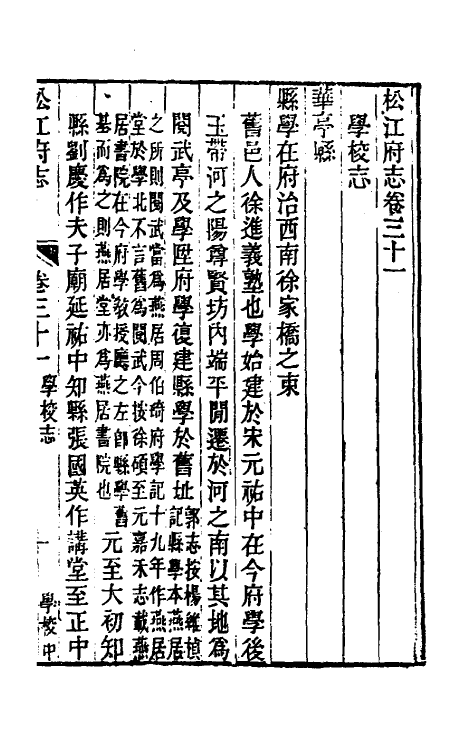 松江府志卷三十一
學校志
華亭縣
縣學在府治西南徐家橋之東
舊邑人徐進義塾也學始建於宋元祐中在今府學後
玉帶河之陽尊賢坊內端平閒遷於河之南以其地爲
閱武亭及學陞府學復建縣學於舊址郭志按楊維楨
記縣學本燕居
之所則閱武當爲燕居周伯琦府學記十九年作燕居
堂於學北不言舊爲閱武今按徐碩至元嘉禾志載燕
居書院在今府學教授廳之左卽縣學舊
基而爲之則燕居堂亦爲燕居書院也元至大初知
縣劉慶作夫子廟延祐中知縣張國英作講堂至正中
松江府志
卷三十一
學校志
一
學校中